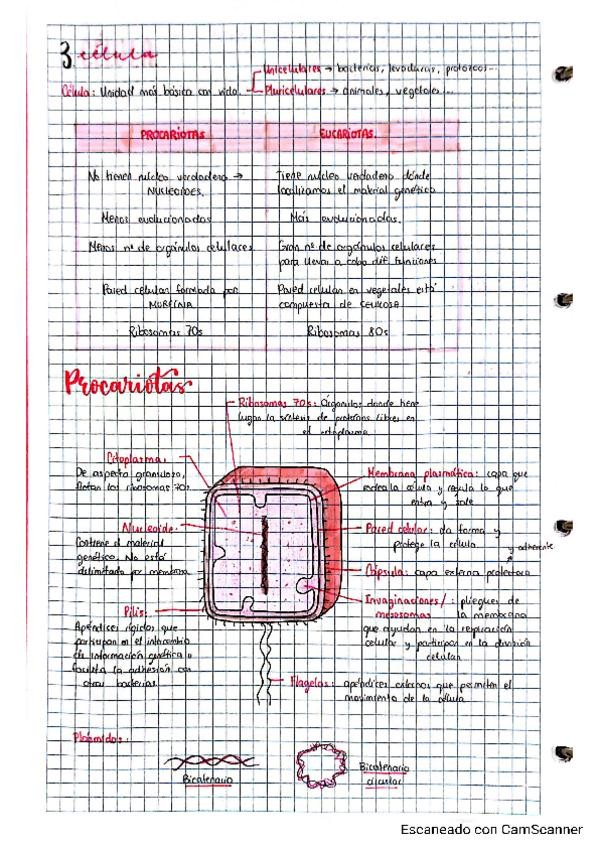 3 célula
Unicelulares → bacterias, levaduras, protozoos...
Célula: Unidad más básica con vida.
Pluricelulares → animales, vegetales...
PROCARIOTAS
EUCARIOTAS.
No tienen núcleo verdadero →
NUCLEOIDES.
Tiene núcleo verdadero dónde
localizamos el material genético
Menos evolucionados
Más evolucionados.
Menos nº de orgánulos celulares
Gran nº de orgánulos celulares
para llevar a cabo dif. funciones
Pared celular formada por
MUREÍNA
Pared celular en vegetales está
compuesta de CELULOSA
Ribosomas 70s
Ribosomas 80s
Procariotas
Ribosomas 70s: Orgánulos donde tiene
lugar la síntesis de proteínas libres en
el citoplasma
Citoplasma.
De aspecto granuloso,
flotan los ribosomas 70s.
Membrana plasmática: capa que
rodea la célula y regula lo que
entra y sale
Nucleoide.
Contiene el material
genético. No está
delimitado por membrana
Pared celular: da forma y
protege la célula
y adherente
Cápsula: capa externa protectora
Pilis:
Apéndices rígidos que
participan en el intercambio
de información genética o
facilita la adhesión con
otras bacterias.
Invaginaciones/: pliegues de
mesosomas la membrana
que ayudan en la respiración
celular y participan en la división
celular.
Flagelos: apéndices externos que permiten el
movimiento de la célula
Plásmidos:
Bicatenario
Bicatenario
circular
Escaneado con CamScanner